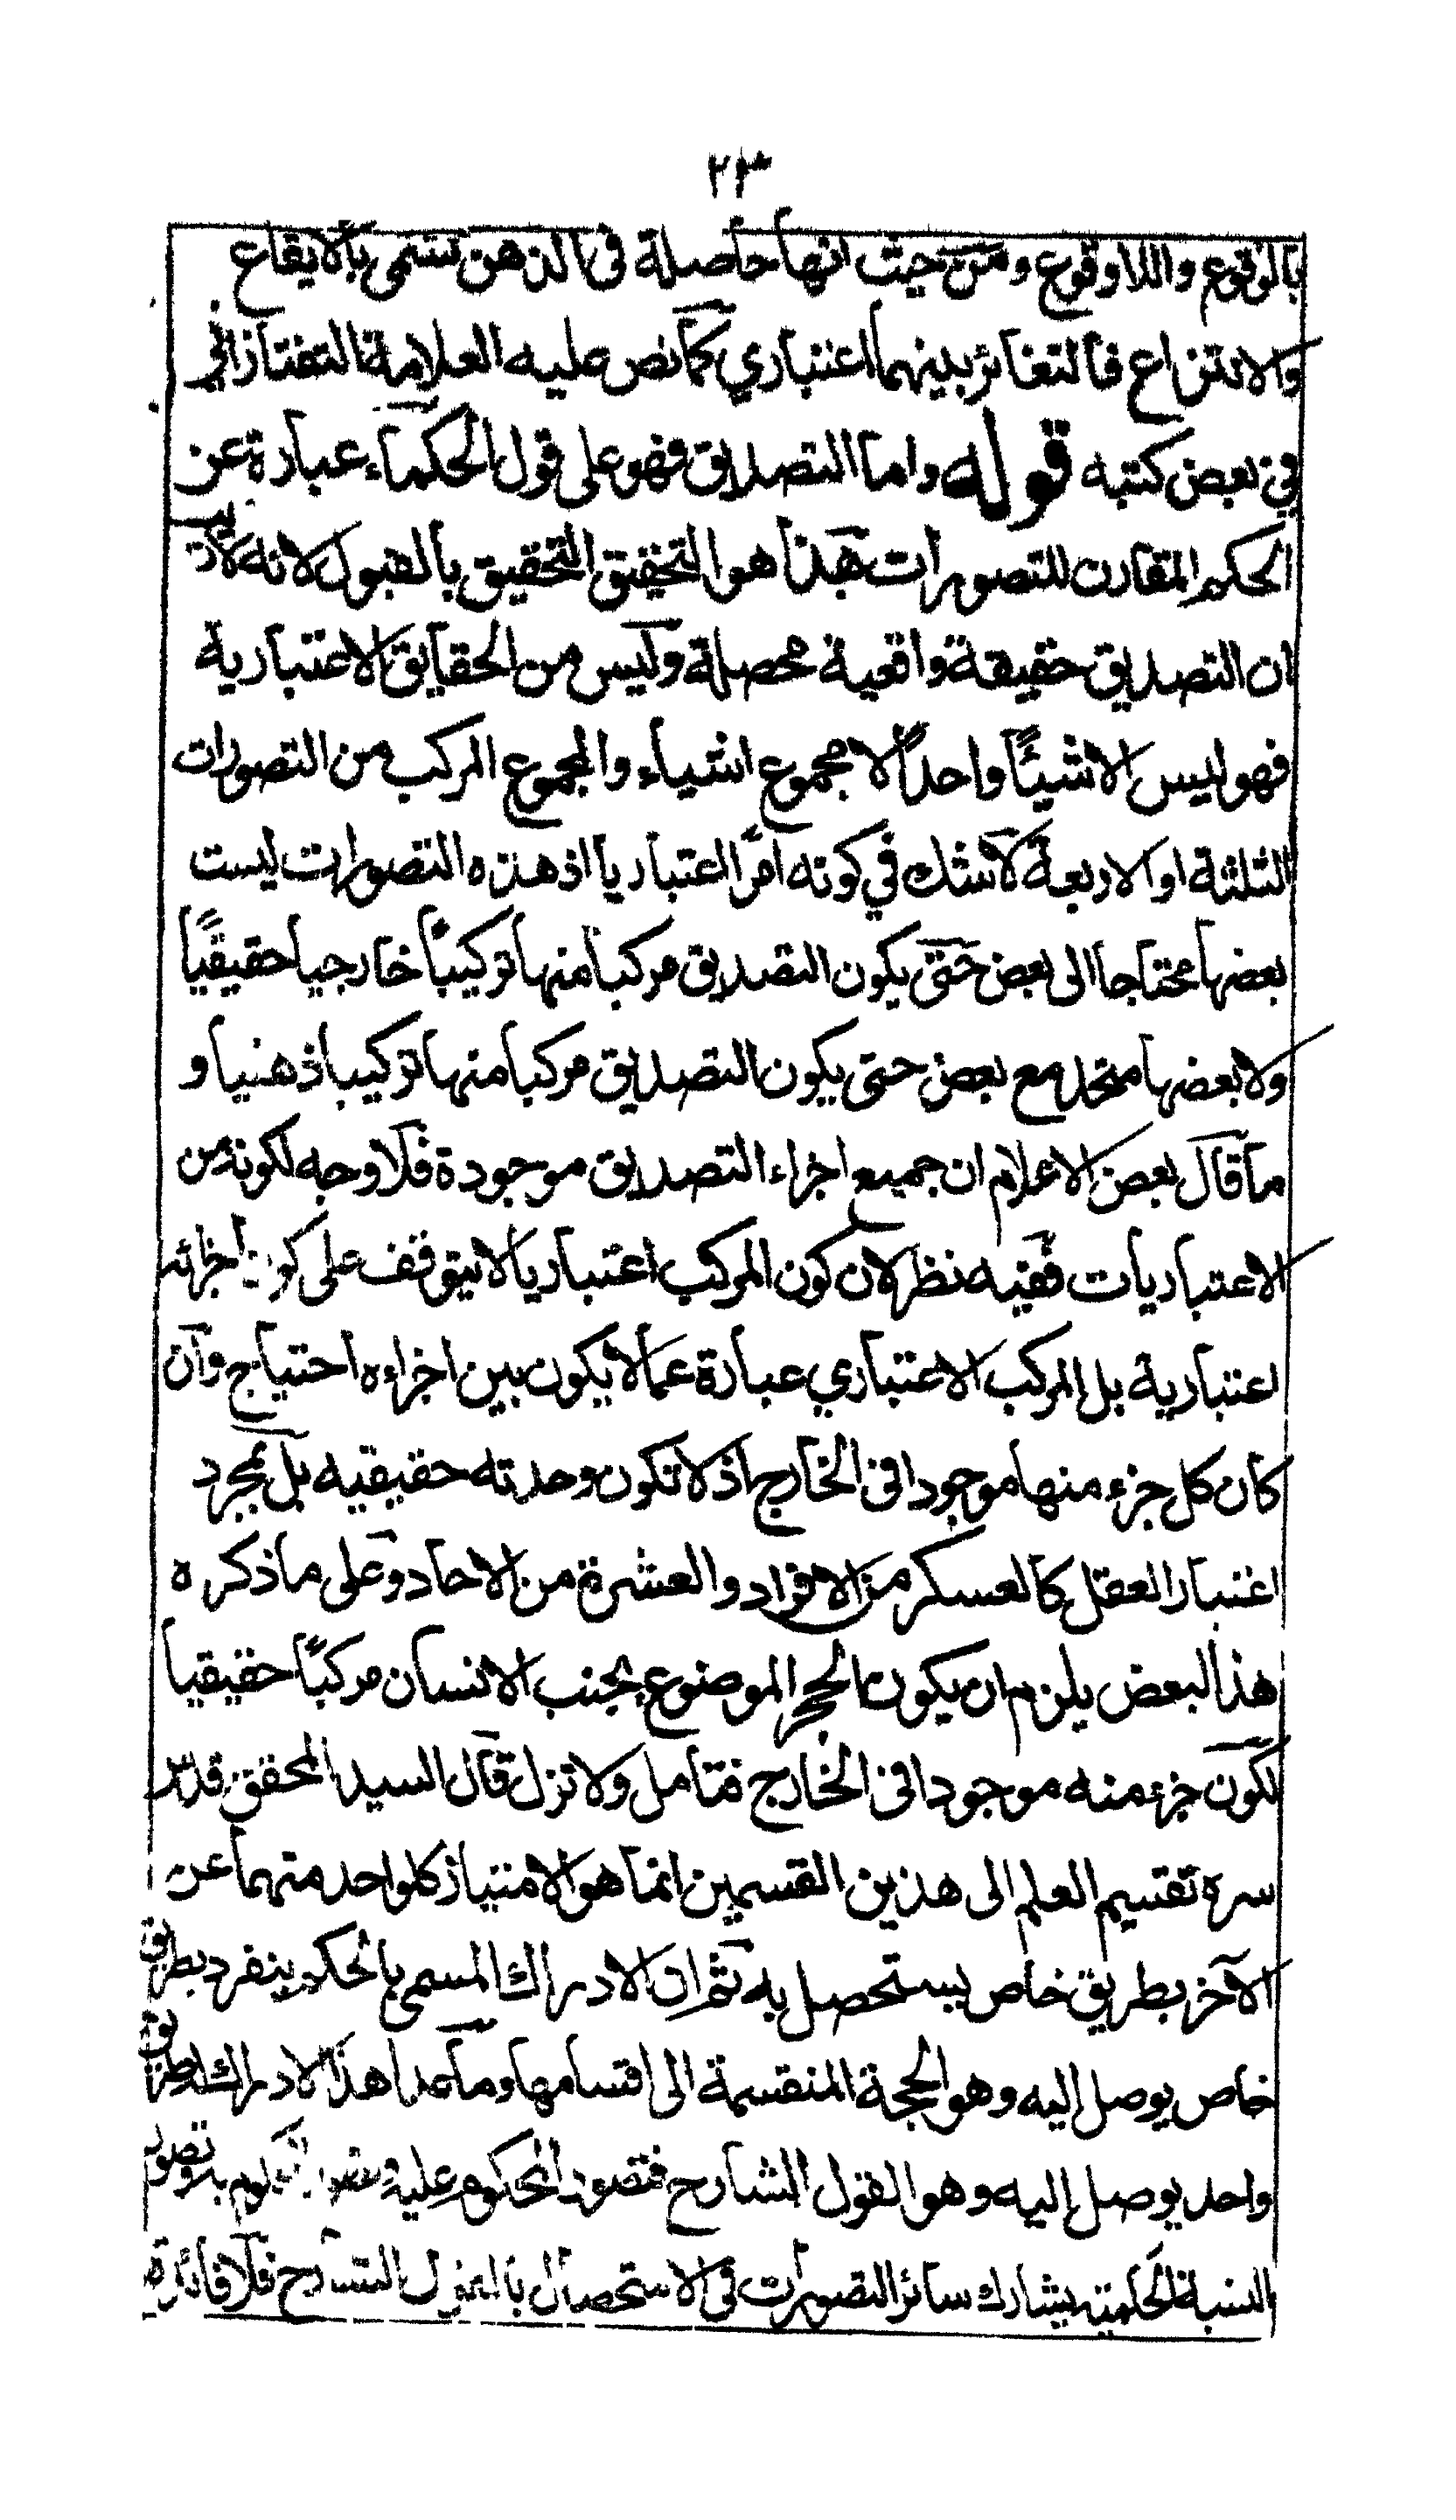 ٢٣
بالوقوع واللاوقوع ومن حيث انها حاصلة فى الذهن تسمى بالايقاع
والانتزاع فالتغائر بينهما اعتباري كما نص عليه العلامة التفتازاني
في بعض كتبه قوله واما التصديق فهو على قول الحكماء عبارة عن
الحكم المقارن للتصورات هذا هو التحقيق الحقيق بالقبول لانه لاريب
ان التصديق حقيقة واقعية محصلة وليس من الحقايق الاعتبارية
فهو ليس الا شيئًا واحدًا لا مجموع اشياء والمجموع المركب من التصورات
الثلثة او الاربعة لا شك في كونه امرًا اعتباريا اذ هذه التصورات ليست
بعضها محتاجا الى بعض حتى يكون التصديق مركبا منها تركيبًا خارجيا حقيقيًا
ولا بعضها متحد مع بعض حتى يكون التصديق مركبا منها تركيبا ذهنيا و
ما قال بعض الاعلام ان جميع اجزاء التصديق موجودة فلا وجه لكونه من
الاعتباريات ففيه نظر لان كون المركب اعتباريا لا يتوقف على كون اجزائه
اعتبارية بل المركب الاعتباري عبارة عما لا يكون بين اجزاءه احتياج وان
كان كل جزء منها موجودا فى الخارج اذ لا تكون وحدته حقيقيه بل بمجرد
اعتبار العقل كالعسكر من الافراد والعشرة من الاحاد وعلى ما ذكره
هذا البعض يلزم ان يكون الحجر الموضوع بجنب الانسان مركبًا حقيقيا
لكون جزء منه موجودا فى الخارج فتامل ولا تزل قال السيد المحقق قدس
سره تقسيم العلم الى هذين القسمين انما هو لامتياز كلواحد منهما عن
الآخر بطريق خاص يستحصل به ثم ان الادراك المسمى بالحكم ينفرد بطريق
خاص يوصل اليه وهو الحجة المنقسمة الى اقسامها وما عدا هذا الادراك له طريق
واحد يوصل اليه وهو القول الشارح فتصور المحكوم عليه وتصور المحكوم به وتصور
النسبة الحكمية يشارك سائر التصورات فى الاستحصال بالقول الشارح فلا فائدة